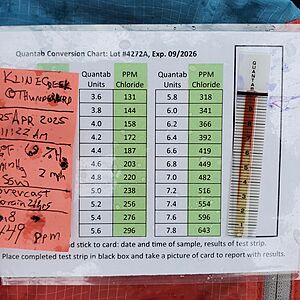 Quantab Conversion Chart: Lot #4272A, Exp. 09/2026
KLINE CREEK
@THUNDERBIRD
25 APR 2025
11:22 AM
Quantab Units PPM Chloride Quantab Units PPM Chloride
3.6 131 5.8 318
3.8 144 6.0 341
4.0 158 6.2 366
4.2 172 6.4 392
4.4 187 6.6 419
4.6 203 6.8 449
4.8 220 7.0 482
5.0 238 7.2 516
5.2 256 7.4 554
5.4 276 7.6 596
5.6 296 7.8 643
2 mph
SSW
overcast
.8
449 ppm
QUANTAB
d stick to card: date and time of sample, results of test strip.
Place completed test strip in black box and take a picture of card to report with results.